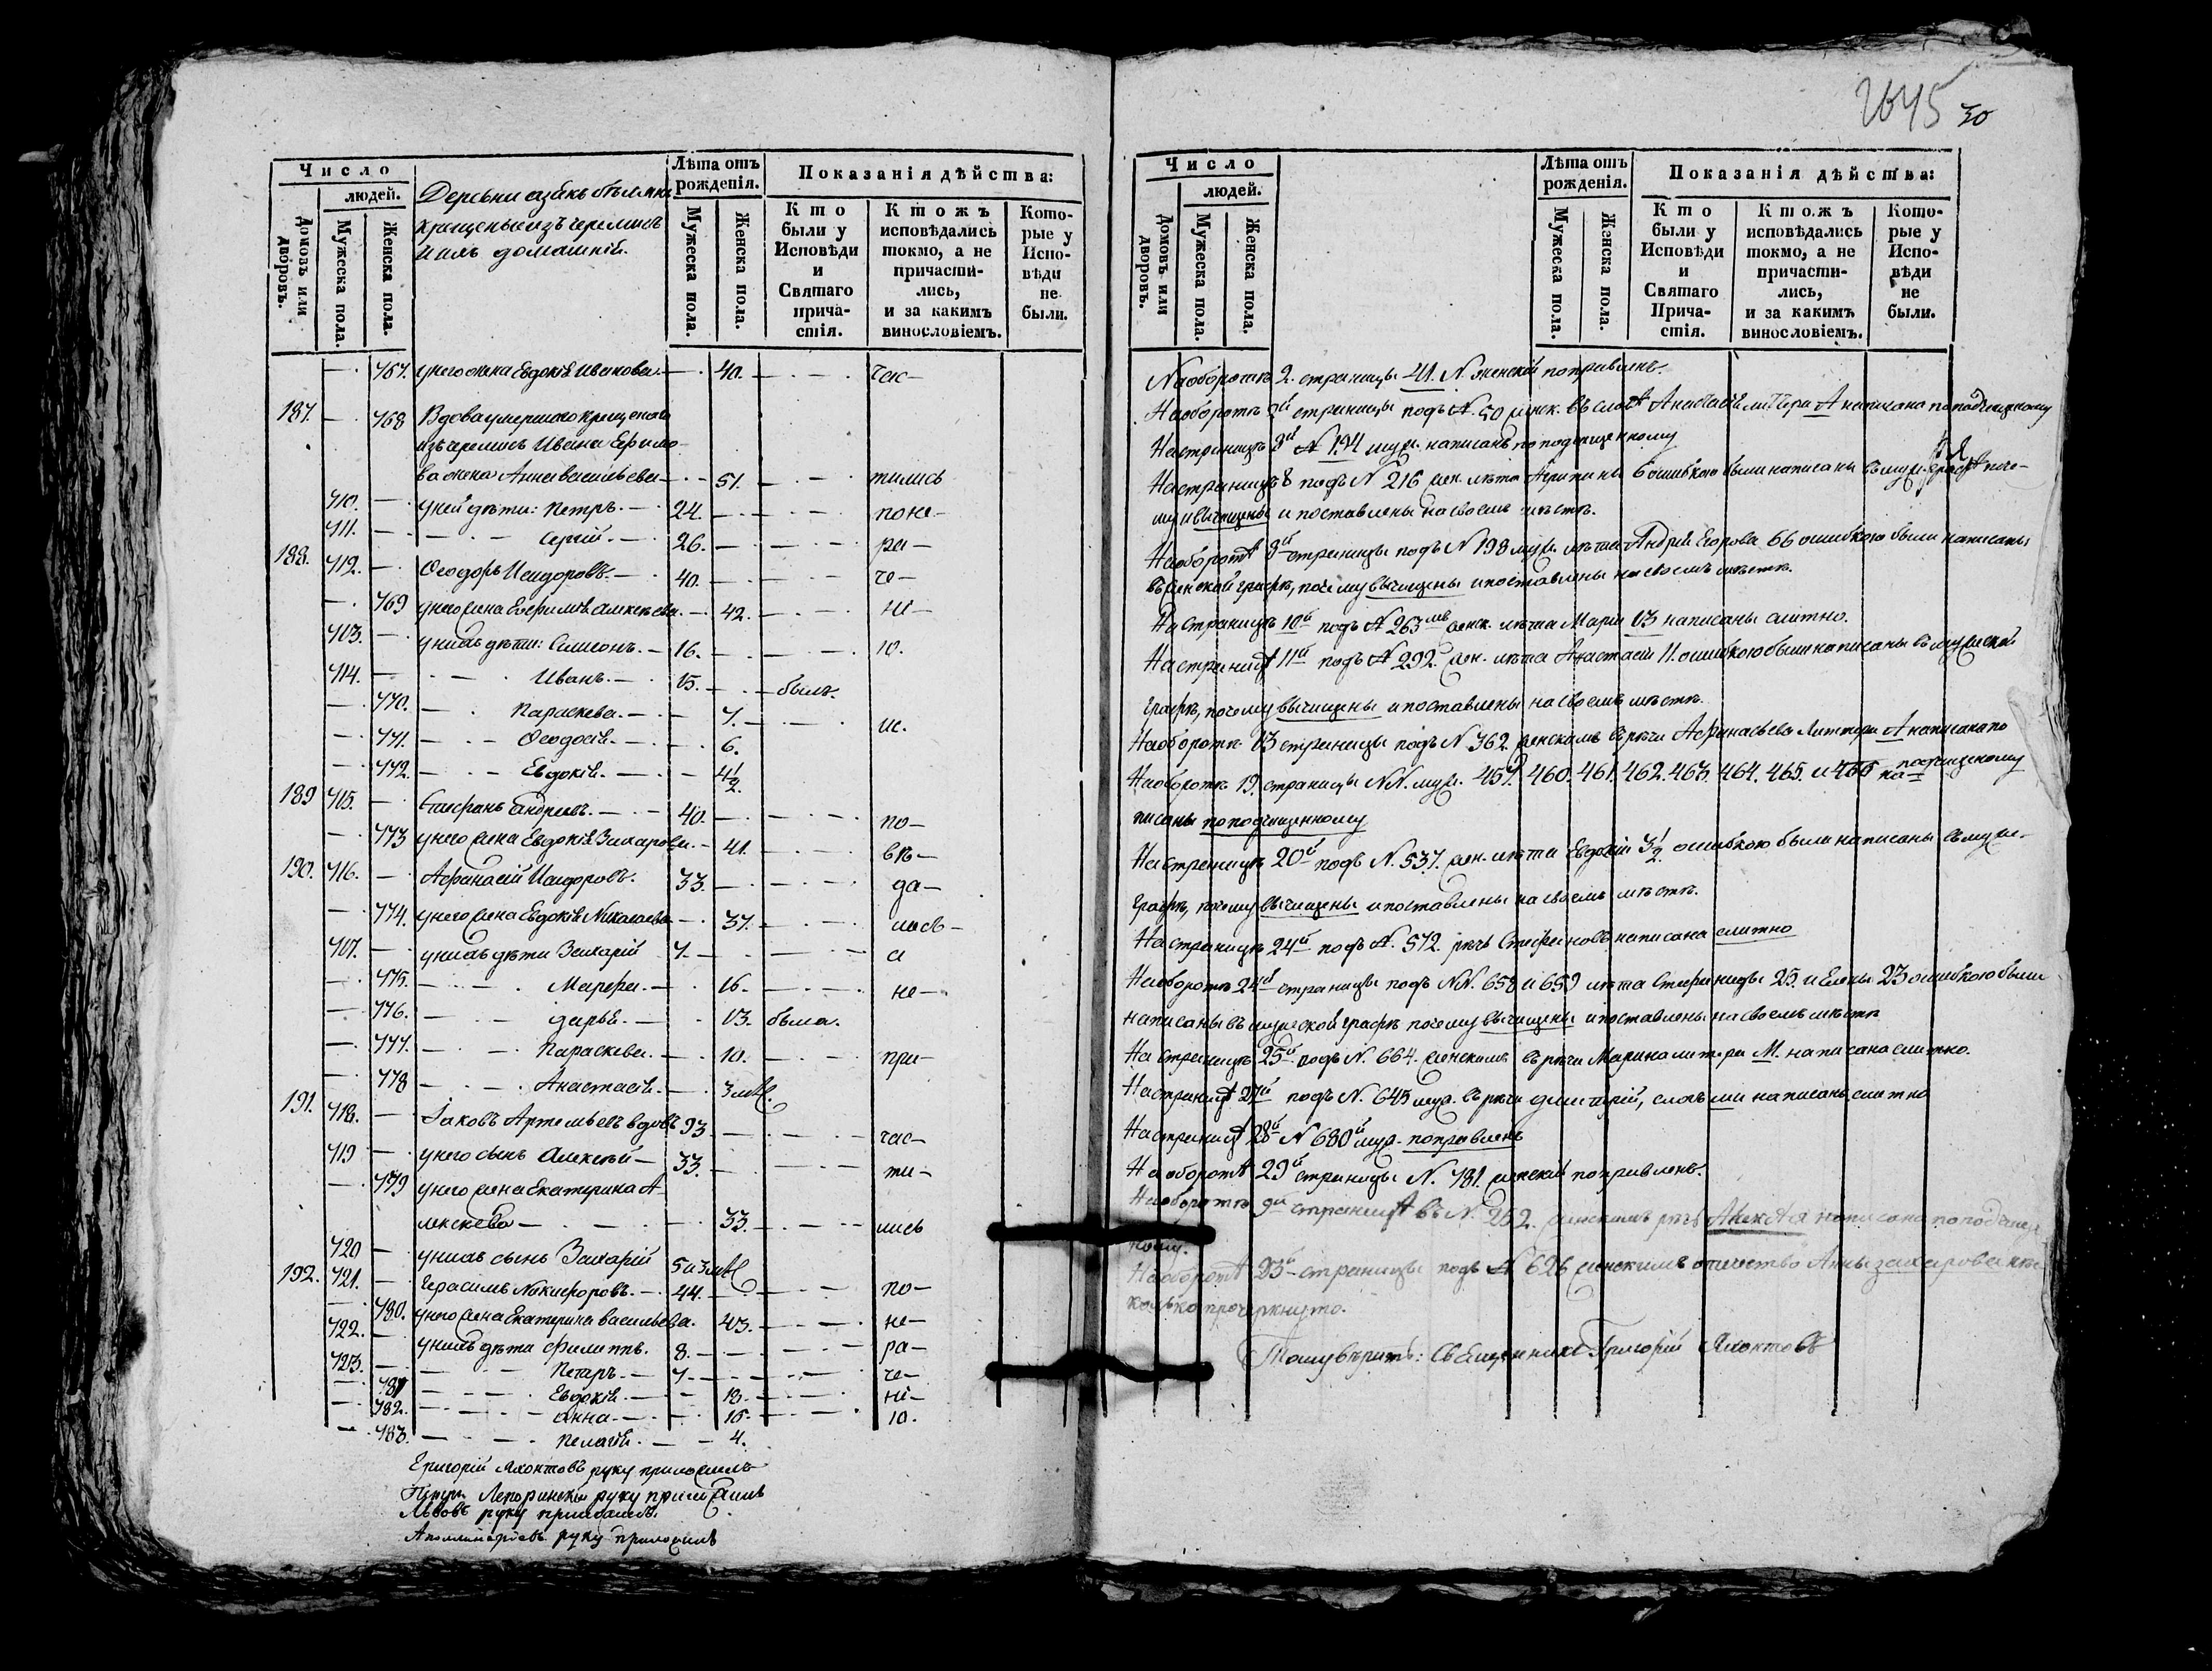 2645 30
Число
людей.
Домовъ или дворовъ.
Мужеска пола.
Женска пола.
Деревни
крещеные изъ черемисъ
и ихъ домашнiи.
Лѣта отъ рожденiя.
Мужеска пола.
Женска пола.
Показанiя дѣйства:
Кто были у Исповѣди и Святаго прича- стiя.
Ктожъ исповѣдались токмо, а не причасти- лись, и за какимъ винословiемъ.
Кото- рые у Испо- вѣди не были.
— 767. у него жена Евдокiя Иванова — 40. — час-
187. — 768 Вдова умершаго крещенаго
изъ черемисъ Ивана Ефимо-
ва жена Анна Васильева — 51. — тились
710. — у ней дѣти: Петръ. — 24. — по не-
711. — Сергiй. — 26. — ра-
188. 712. — Ѳеодоръ Исидоровъ. — 40. — че-
— 769 у него жена Евфимiя Алексѣева. — 42. — нi-
713. — у нихъ дѣти: Симеонъ. — 16. — ю.
714. — Иванъ. — 15. — былъ.
— 770. — Параскева. — 7. — ис.
— 771. — Ѳеодосiя. — 6.
— 772. — Евдокiя. — 4½.
189 715. — Стефанъ Андреевъ. — 40. — по-
— 773 у него жена Евдокiя Захарова. — 41. — вѣ-
190. 716. — Афанасiй Исидоровъ. 33. — да-
— 774. у него жена Евдокiя Николаева — 37. — лись-
717. — у нихъ дѣти Захарiй 7. — а
— 775. — Марфа. — 16. — не-
— 776. — Дарья. — 13. была.
— 777. — Параскева. — 10. — при-
— 778 — Анастасiя. — 3 мѣс.
191. 718. — Iаковъ Артемьевъ вдовъ 93. — час-
719 — у него сынъ Алексѣй — 33. — ти-
— 779 у него жена Екатерина А-
лексѣева — 33. — лись
720 — у нихъ сынъ Захарiй 5 и 3 мѣс
192. 721. — Герасимъ Никифоровъ. — 44. — по-
— 780. у него жена Екатерина Васильева. 43. — не-
722. — у нихъ дѣти Филиппъ. 8. — ра-
723. — Петръ. — 7. — че-
— 781 — Евдокiя. — 18. — нi-
— 782. — Анна. — 15. — ю.
— 783. — Пелагiя. — 4.
Григорiй Яхонтовъ руку приложилъ
Лепоринскiй руку приложилъ
Львовъ руку приложилъ.
Аполлинарiевъ руку приложилъ
Число
людей.
Домовъ или дворовъ.
Мужеска пола.
Женска пола.
Лѣта отъ рожденiя.
Мужеска пола.
Женска пола.
Показанiя дѣйства:
Кто были у Исповѣди и Святаго Прича- стiя.
Ктожъ исповѣдались токмо, а не причасти- лись, и за какимъ винословiемъ.
Кото- рые у Испо- вѣди не были.
На оборотѣ 2. страницы 41. N женскiй поправленъ.
На оборотѣ страницы подъ N. 50 женск. въ словѣ Анастасiя литера А написана по подчищенному
На страницѣ 8й N 194 муж. написанъ по подчищенному
На страницѣ 8 подъ N 216 жен. лѣта Агрипины 6 ошибкою были написаны въ муж. графѣ поче-
му и вычищены и поставлены на своемъ мѣстѣ.
На оборотѣ 8й страницы подъ N 198 муж. лѣта Андрей Егорова 66 ошибкою были написаны
въ женской графѣ, почему вычищены и поставлены на своемъ мѣстѣ.
На страницѣ 10й подъ N 263мъ женск. лѣта Марiи 13 написаны слитно.
На страницѣ 11й подъ N 292. жен. лѣта Анастасiи 11. ошибкою были написаны въ мужеской
графѣ, почему вычищены и поставлены на своемъ мѣстѣ.
На оборотѣ 13 страницы подъ N 362 женскимъ въ рѣчи Афанасьева литера А написана по
подчищенному
На оборотѣ 19. страницы NN. муж. 457. 460. 461. 462. 463. 464. 465. и 466 на-
писаны по подчищенному
На страницѣ 20й подъ N. 537. жен. лѣта Евдокiи 3½. ошибкою были написаны въ муж.
графѣ, почему вычищены и поставлены на своемъ мѣстѣ.
На страницѣ 24й подъ N. 572. рѣчь Стефановъ написана слитно
На оборотѣ 24й страницы подъ NN. 658 и 659 лѣта Стефаниды 25. и Елены 23 ошибкою были
написаны въ мужеской графѣ почему вычищены и поставлены на своемъ мѣстѣ
На страницѣ 25й подъ N. 664. женскимъ въ рѣчи Марина литера М. написана слитно.
На страницѣ 27й подъ N. 645 муж. въ рѣчи Димитрiй, слогъ ми написанъ слитно
На страницѣ 28й N 680й муж. поправленъ
На оборотѣ 29й страницы N. 781. женскiй поправленъ.
На оборотѣ 9й страницѣ въ N. 262. женскимъ рѣчь написана по подчищен-
ному.
На оборотѣ 23й страницы подъ N 626 женскимъ отечество Анны Захарова нѣс-
колько прочеркнуто.
Тому вѣритъ: Священникъ Григорiй Яхонтовъ